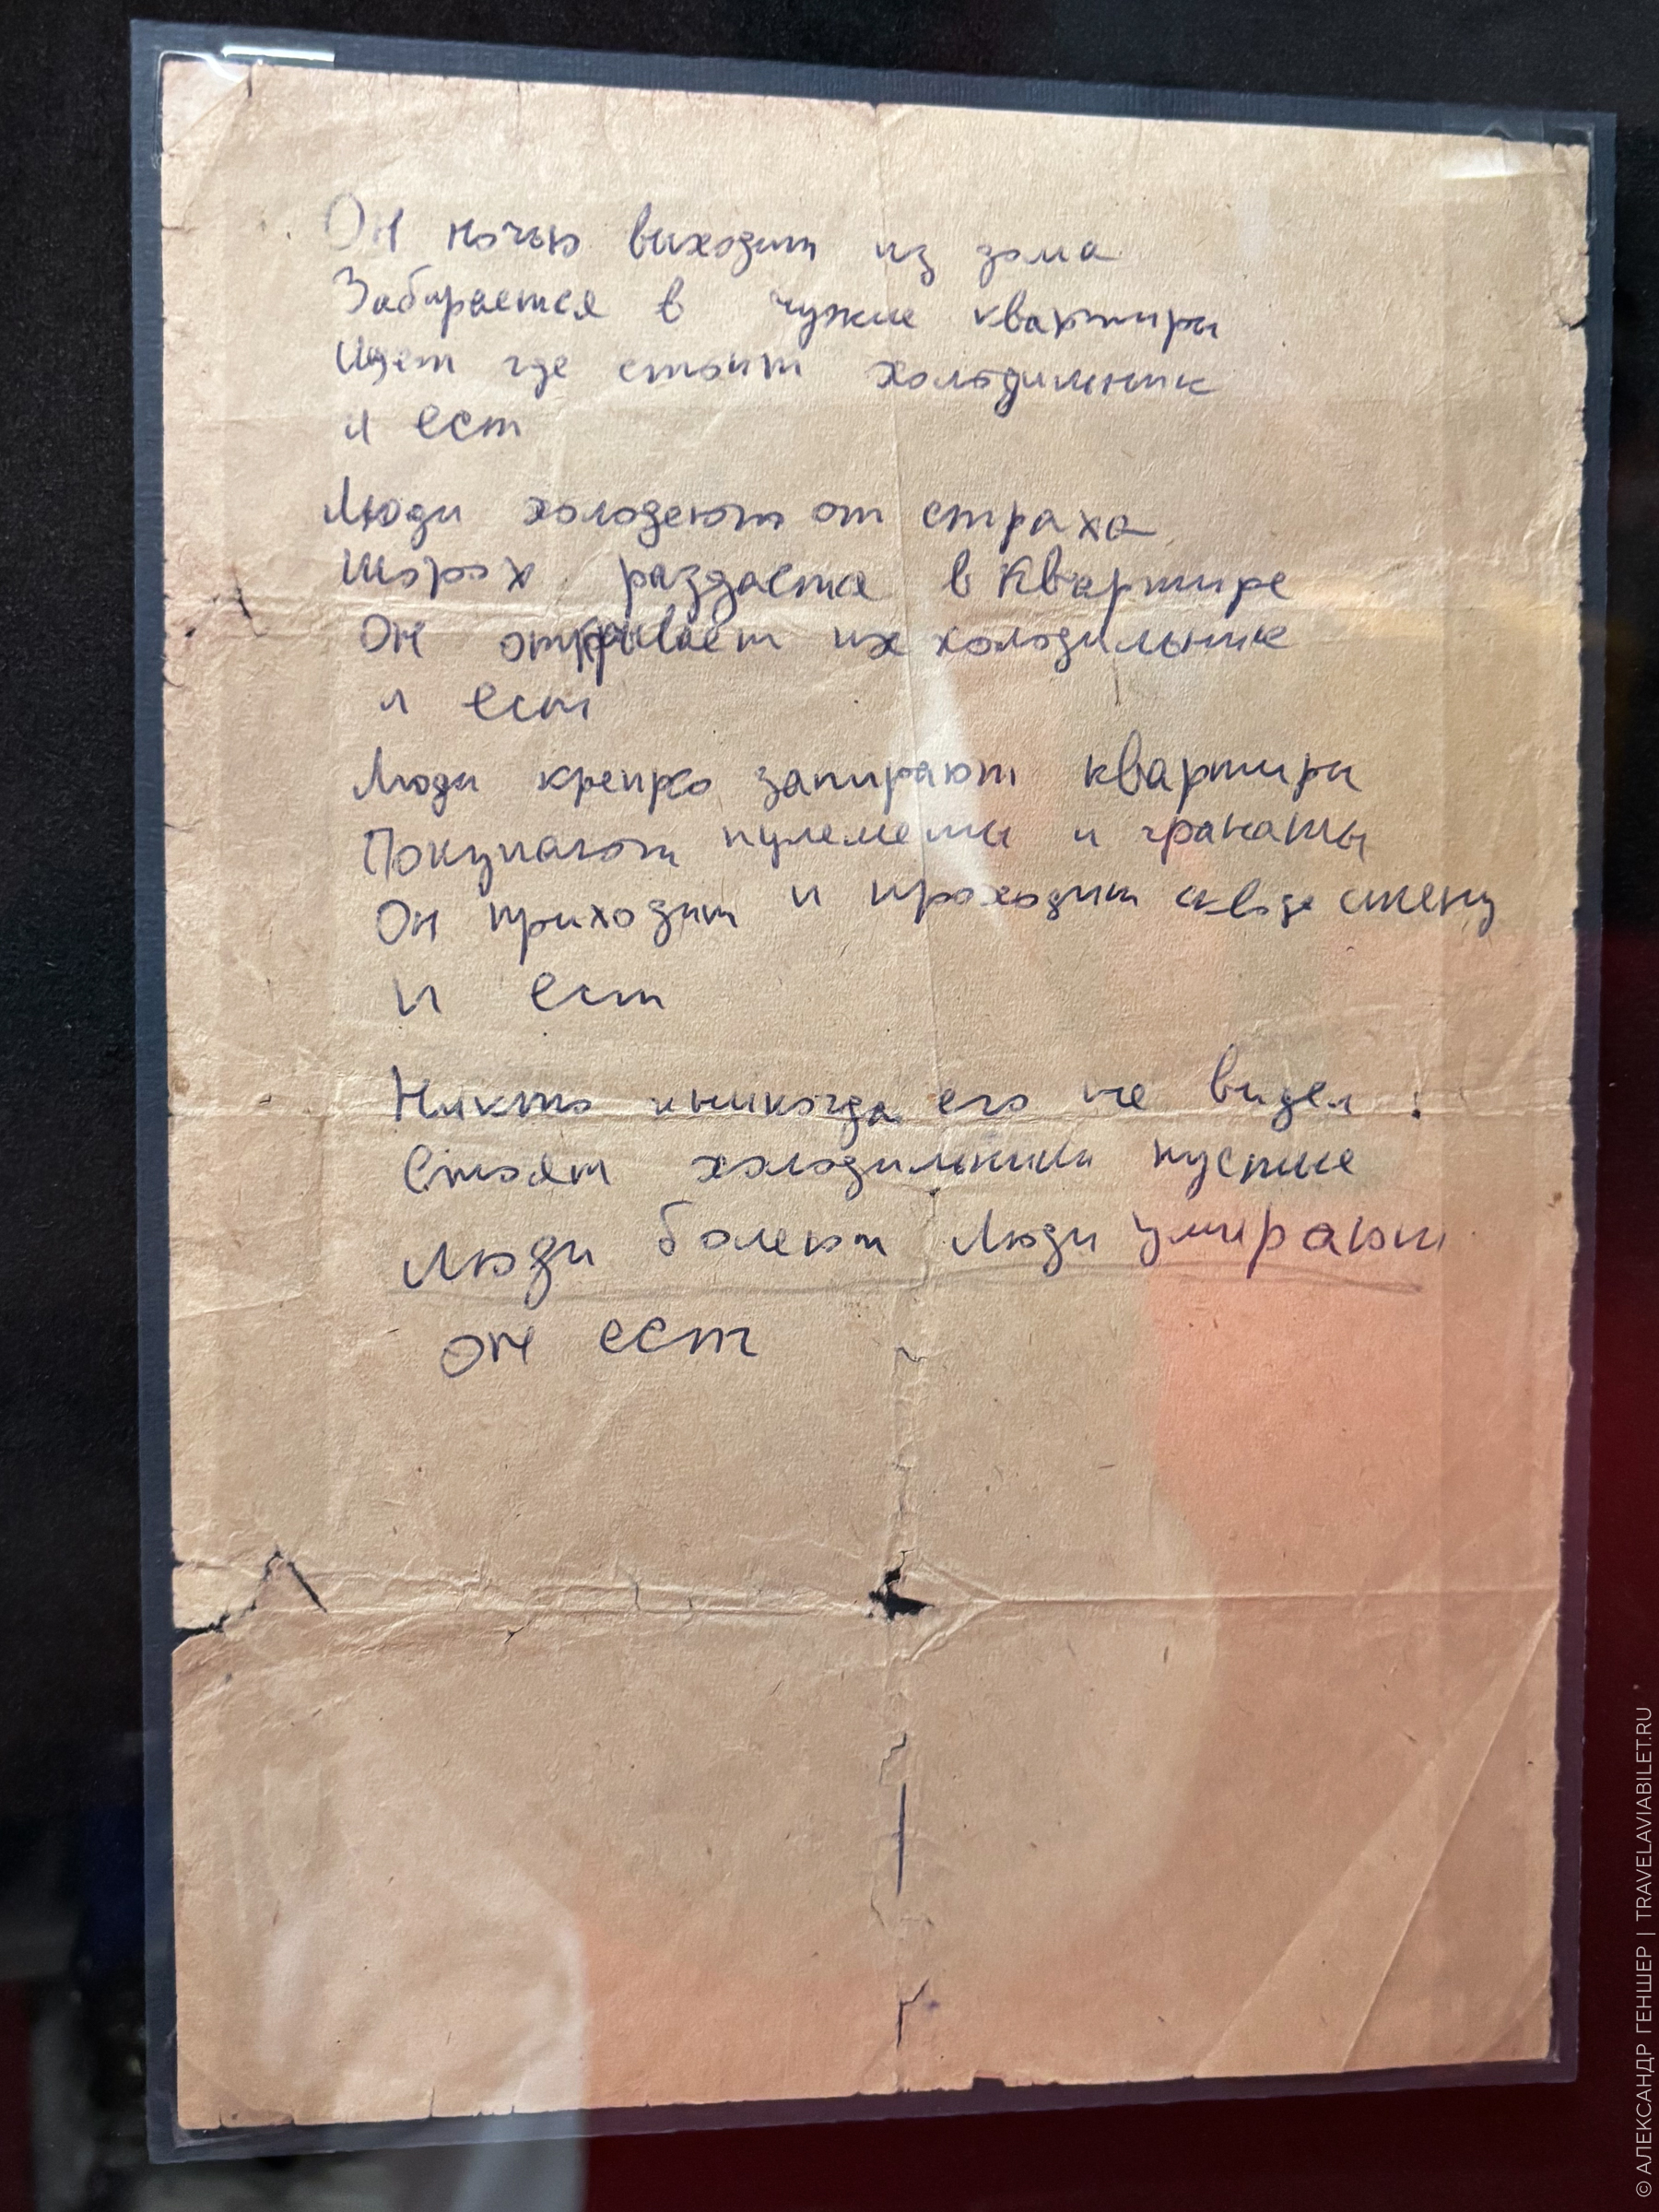 Он ночью выходит из дома
Забирается в чужие квартиры
Ищет где стоит холодильник
и ест
Люди холодеют от страха
Шорох раздается в квартире
Он открывает их холодильник
и ест
Люди крепко запирают квартиры
Покупают пулеметы и гранаты
Он приходит и проходит сквозь стену
и ест
Никто никогда его не видел!
Стоят холодильники пустые
Люди болеют Люди умирают
он ест
© АЛЕКСАНДР ГЕНШЕР | TRAVELAVIABILET.RU